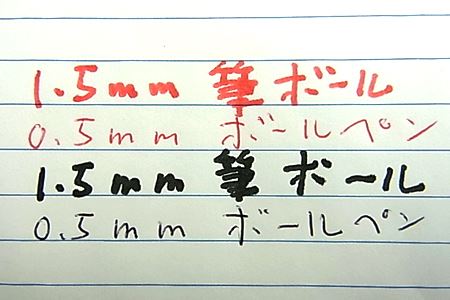 1.5mm 筆ボール
0.5mm ボールペン
1.5mm 筆ボール
0.5mm ボールペン